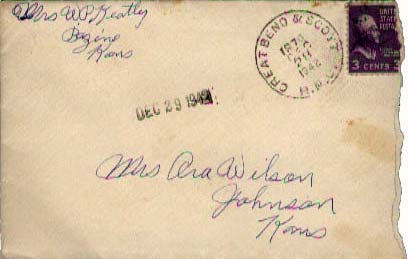 Mrs W P Keatley
Bazine
Kans
GREAT BEND & SCOTT
DEC
1942
R.P.O.
UNITED STATES POSTAGE
3 CENTS 3
DEC 29 1942
Mrs Ora Wilson
Johnson
Kans